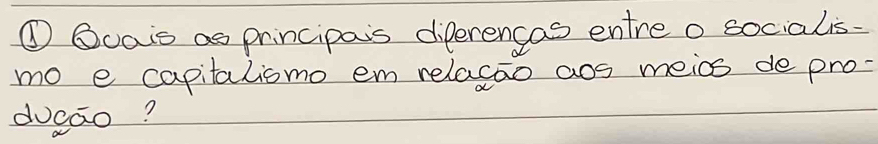 ① Quais as principais diferenças entre o socialis-
mo e capitalismo em relação aos meios de pro-
dução ?